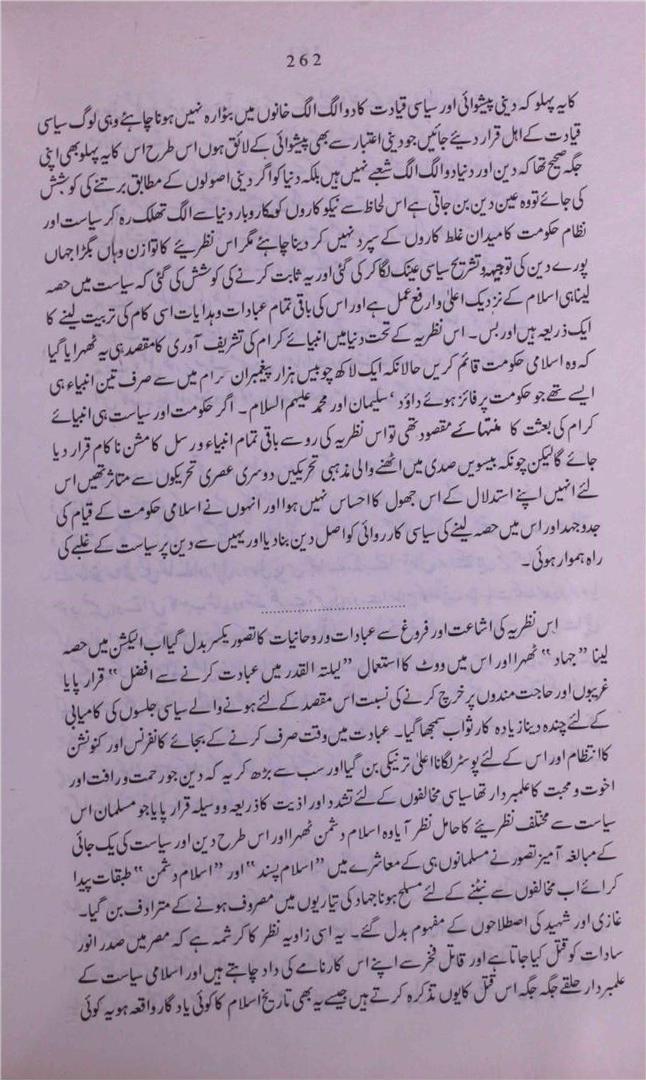 262
کا یہ پہلو کہ دینی پیشوائی اور سیاسی قیادت کا دو الگ الگ خانوں میں بٹوارہ نہیں ہونا چاہئے وہی لوگ سیاسی
قیادت کے اہل قرار دیئے جائیں جو دینی اعتبار سے بھی پیشوائی کے لائق ہوں اس طرح اس کا یہ پہلو بھی اپنی
جگہ صحیح تھا کہ دین اور دنیا دو الگ الگ شعبے نہیں ہیں بلکہ دنیا کو اگر دینی اصولوں کے مطابق برتنے کی کوشش
کی جائے تو وہ عین دین بن جاتی ہے اس لحاظ سے نیکوکاروں کو کاروبار دنیا سے الگ تھلگ رہ کر سیاست اور
نظام حکومت کا میدان غلط کاروں کے سپرد نہیں کر دینا چاہئے مگر اس نظریئے کا توازن وہاں بگڑا جہاں
پورے دین کی توجیہہ و تشریح سیاسی عینک لگا کر کی گئی اور یہ ثابت کرنے کی کوشش کی گئی کہ سیاست میں حصہ
لینا ہی اسلام کے نزدیک اعلیٰ و ارفع عمل ہے اور اس کی باقی تمام عبادات و ہدایات اسی کام کی تربیت لینے کا
ایک ذریعہ ہیں اور بس۔ اس نظریہ کے تحت دنیا میں انبیائے کرام کی تشریف آوری کا مقصد ہی یہ ٹھہرایا گیا
کہ وہ اسلامی حکومت قائم کریں حالانکہ ایک لاکھ چوبیس ہزار پیغمبران کرام میں سے صرف تین انبیاء ہی
ایسے تھے جو حکومت پر فائز ہوئے داؤد، سلیمان اور محمد علیہم السلام۔ اگر حکومت اور سیاست ہی انبیائے
کرام کی بعثت کا منتہائے مقصود تھی تو اس نظریہ کی رو سے باقی تمام انبیاء و رسل کا مشن ناکام قرار دیا
جائے گا لیکن چونکہ بیسویں صدی میں اٹھنے والی مذہبی تحریکیں دوسری عصری تحریکوں سے متاثر تھیں اس
لئے انہیں اپنے استدلال کے اس جھول کا احساس نہیں ہوا اور انہوں نے اسلامی حکومت کے قیام کی
جدوجہد اور اس میں حصہ لینے کی سیاسی کارروائی کو اصل دین بنا دیا اور یہیں سے دین پر سیاست کے غلبے کی
راہ ہموار ہوئی۔
اس نظریہ کی اشاعت اور فروغ سے عبادات و روحانیات کا تصور یکسر بدل گیا اب الیکشن میں حصہ
لینا "جہاد" ٹھہرا اور اس میں ووٹ کا استعمال "لیلتہ القدر میں عبادت کرنے سے افضل" قرار پایا
غریبوں اور حاجت مندوں پر خرچ کرنے کی نسبت اس مقصد کے لئے ہونے والے سیاسی جلسوں کی کامیابی
کے لئے چندہ دینا زیادہ کار ثواب سمجھا گیا۔ عبادت میں وقت صرف کرنے کے بجائے کانفرنس اور کنونشن
کا انتظام اور اس کے لئے پوسٹر لگانا اعلیٰ تر نیکی بن گیا اور سب سے بڑھ کر یہ کہ دین جو رحمت و رافت اور
اخوت و محبت کا علمبردار تھا سیاسی مخالفوں کے لئے تشدد اور اذیت کا ذریعہ و وسیلہ قرار پایا جو مسلمان اس
سیاست سے مختلف نظریئے کا حامل نظر آیا وہ اسلام دشمن ٹھہرا اور اس طرح دین اور سیاست کی یک جائی
کے مبالغہ آمیز تصور نے مسلمانوں ہی کے معاشرے میں "اسلام پسند" اور "اسلام دشمن" طبقات پیدا
کرائے اب مخالفوں سے نبٹنے کے لئے مسلح ہونا جہاد کی تیاریوں میں مصروف ہونے کے مترادف بن گیا۔
غازی اور شہید کی اصطلاحوں کے مفہوم بدل گئے۔ یہ اسی زاویہ نظر کا کرشمہ ہے کہ مصر میں صدر انور
سادات کو قتل کیا جاتا ہے اور قاتل فخر سے اپنے اس کارنامے کی داد چاہتے ہیں اور اسلامی سیاست کے
علمبردار حلقے جگہ جگہ اس قتل کا یوں تذکرہ کرتے ہیں جیسے یہ بھی تاریخ اسلام کا کوئی یادگار واقعہ ہو یہ کوئی